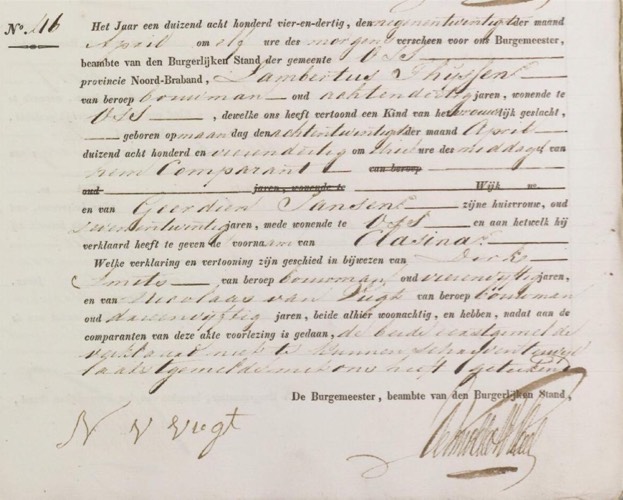 No. 46
Het Jaar een duizend acht honderd vier-en-dertig, den negenentwintigste der maand
April om elf ure des morgens verscheen voor ons Burgemeester,
beambte van den Burgerlijken Stand der gemeente OSS
provincie Noord-Braband, Lambertus Thijssen
van beroep bouwman oud achtendertig jaren, wonende te
OSS, dewelke ons heeft vertoond een Kind van het vrouwelijk geslacht,
geboren op maandag den achtentwintigste der maand April
duizend acht honderd en vierendertig om drie ure des middags van
hem Comparant van beroep
oud jaren, wonende te Wijk w.
en van Geerdien Jansen zijne huisvrouw, oud
zevenentwintig jaren, mede wonende te OSS en aan hetwelk hij
verklaard heeft te geven de voornaam van Clasina
Welke verklaring en vertooning zijn geschied in bijwezen van Dirk
Smits van beroep bouwman, oud vierenvijftig jaren,
en van Nicolaas van Vugt van beroep bouwman
oud drieenvijftig jaren, beide alhier woonachtig, en hebben, nadat aan de
comparanten van deze akte voorlezing is gedaan, de beide eerstgemelde
verklaard niet te kunnen schrijven terwijl
laatstgemelde met ons heeft geteekend
De Burgemeester, beambte van den Burgerlijken Stand,
N V Vugt